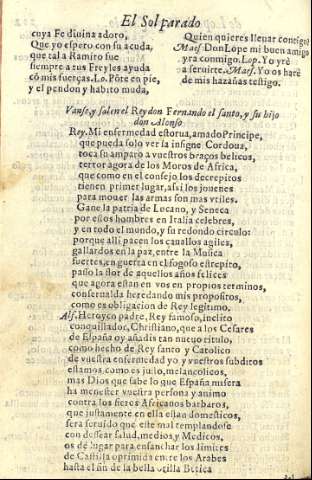 El Sol parado
cuya Fè diuina adoro,
Que yo espero con su ayuda,
que tal a Ramiro fue
siempre a tus Freyles ayuda
cõ mis fuerças. Lo. Põte en pie,
y el pendon y habito muda,
Quien quieres lleuar contigo?
Maes. Don Lope mi buen amigo
yra conmigo. Lop. Yo yrè
a seruirte. Maes. Yo os harè
de mis hazañas testigo.
Vanse, y salen el Rey don Fernando el santo, y su hijo
don Alonso.
Rey. Mi enfermedad estorua, amado Principe,
que pueda solo ver la insigne Cordoua,
toca su amparo a vuestros braços belicos,
terror agora de los Moros de Africa,
que como en el consejo los decrepitos
tienen primer lugar, assi los jouenes
para mouer las armas son mas vtiles.
Gane la patria de Lucano, y Seneca
por estos hombres en Italia celebres,
y en todo el mundo, y su redondo circulo:
porque alli pacen los cauallos agiles,
gallardos en la paz, entre la Musica
fuertes, en guerra en el fogoso estrepito,
passo la flor de aquellos años felices
que agora estan en vos en propios terminos,
conserualda heredando mis propositos,
como es obligacion de Rey legitimo.
Alf. Heroyco padre, Rey famoso, inclito
conquistador, Christiano, que a los Cesares
de España oy añadis tan nueuo titulo,
como hecho de Rey santo y Catolico
de vuestra enfermedad yo y vuestros subditos
estamos, como es justo, melancolicos,
mas Dios que sabe lo que España misera
ha menester vuestra persona y animo
contra los fieros Africanos barbaros,
que justamente en ella estan domesticos,
sera seruido que este mal templandose
con dessear salud, medios, y Medicos,
os dè lugar para ensanchar los limites
de Castilla oprimida entre los Arabes
hasta el fin de la bella orilla Betica